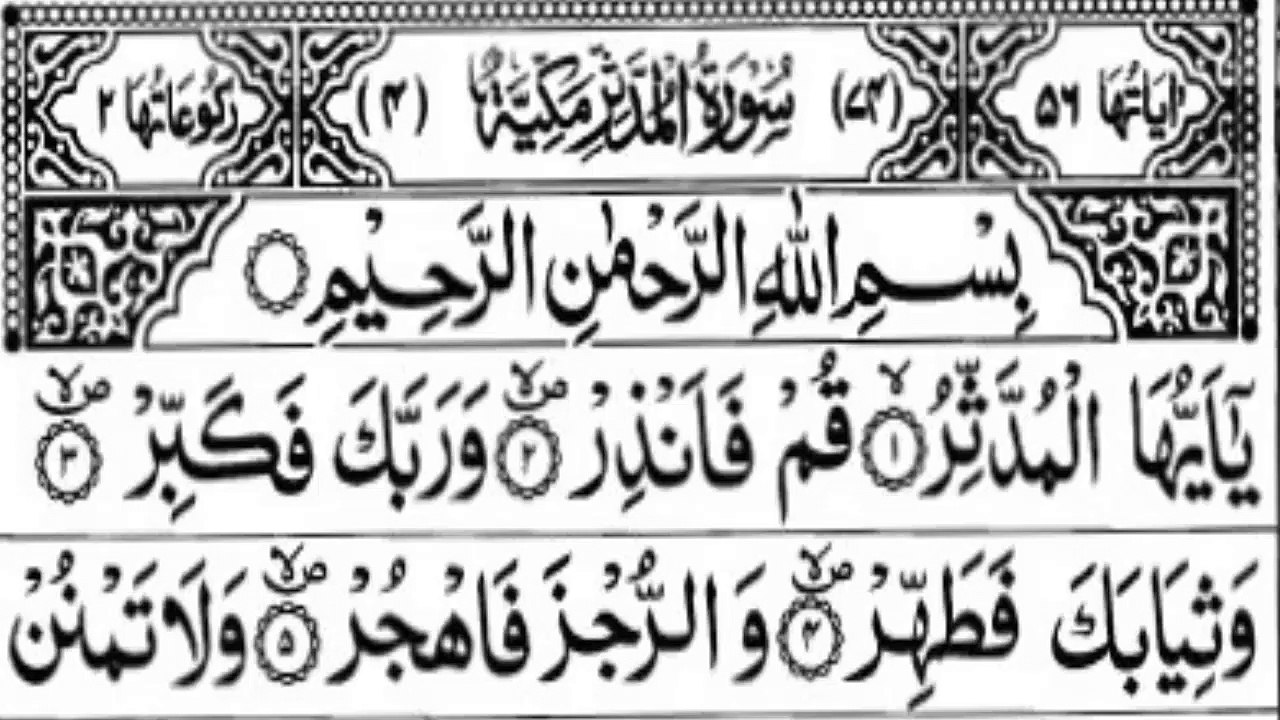 اٰيَاتُهَا ٥٦ (٧٤) سُوْرَةُ الْمُدَّثِّرِ مَكِّيَّةٌ (٤) رُكُوْعَاتُهَا ٢
بِسْمِ اللّٰهِ الرَّحْمٰنِ الرَّحِيْمِ
يٰۤاَيُّهَا الْمُدَّثِّرُ ۙ‏﴿١﴾ قُمْ فَاَنْذِرْ ۪ۙ‏﴿٢﴾ وَرَبَّكَ فَكَبِّرْ ۪ۙ‏﴿٣﴾
وَثِيَابَكَ فَطَهِّرْ ۪ۙ‏﴿٤﴾ وَ الرُّجْزَ فَاهْجُرْ ۪ۙ‏﴿٥﴾ وَلَا تَمْنُنْ